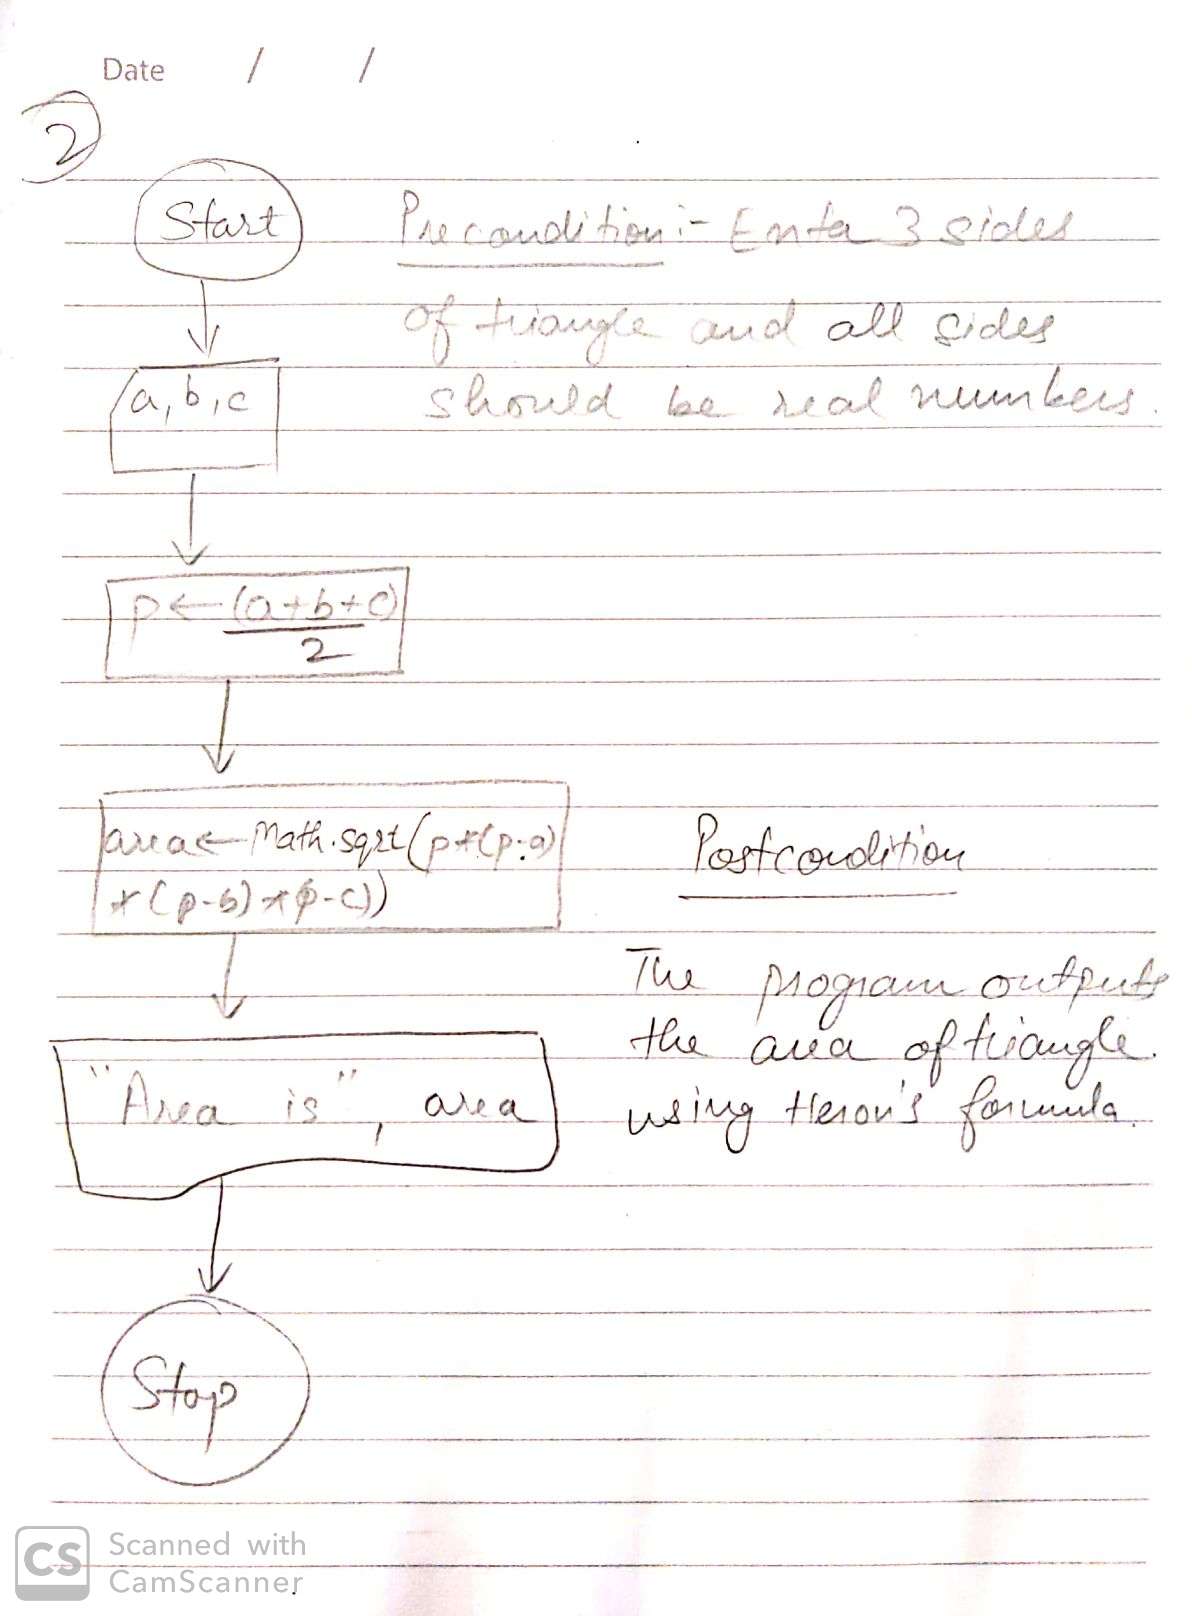 Date / /
2
Start
Precondition:- Enter 3 sides
of triangle and all sides
should be real numbers.
a, b, c
p ← (a+b+c)
2
area ← Math.sqrt(p*(p-a)
*(p-b)*(p-c))
Postcondition
The program outputs
the area of triangle.
using Heron's formula.
"Area is", area
Stop
CS Scanned with
CamScanner